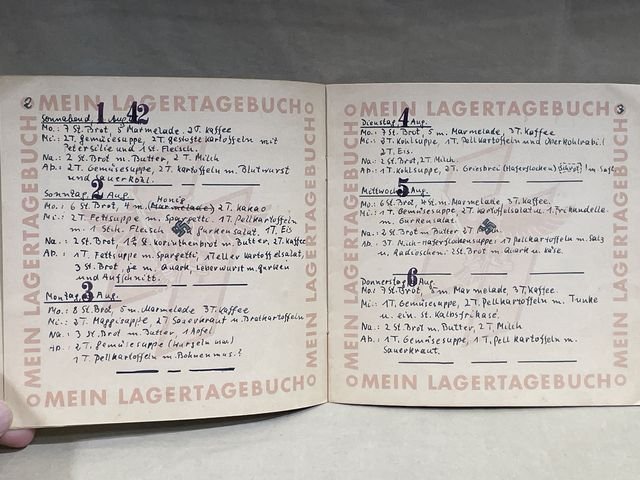 2
MEIN LAGERTAGEBUCH
Sonnabend, 1 Aug. 42
Mo.: 7 St. Brot, 5 Marmelade, 2T. Kaffee
Mi.: 2T. Gemüsesuppe, 2T. gestofte Kartoffeln mit
Petersilie und 1 St. Fleisch.
Na.: 2 St. Brot m. Butter, 2T. Milch
Ab.: 2T. Gemüsesuppe, 2T. Kartoffeln m. Blutwurst
und Sauerkohl.
Sonntag, 2 Aug.
Honig
Mo.: 6 St. Brot, 4 m. (Marmelade) 2T. Kakao
Mi.: 2T. Fettsuppe m. Spargetti, 1T. Pellkartoffeln
m. 1 Stck. Fleisch Gurkensalat. 1T. Eis
Na.: 2 St. Brot, 1 St. Korinthenbrot m. Butter, 2T. Kaffee
Ab.: 1T. Fettsuppe m. Spargetti, 1 Teller Kartoffelsalat,
3 St. Brot, je m. Quark, Leberwurst m. Gurken
und Aufschnitt.
Montag, 3 Aug.
Mo.: 8 St. Brot, 5 m. Marmelade 3T. Kaffee
Mi.: 2T. Maggisuppe, 2T. Sauerkraut m. Bratkartoffeln
Na.: 3 St. Brot m. Butter, 1 Apfel
Ab.: 2T. Gemüsesuppe
1T. Pellkartoffeln m. Bohnenmus.?
MEIN LAGERTAGEBUCH
MEIN LAGERTAGEBUCH
MEIN LAGERTAGEBUCH
3
MEIN LAGERTAGEBUCH
Dienstag, 4 Aug.
Mo.: 7 St. Brot, 5 m. Marmelade, 3T. Kaffee
Mi.: 2T. Kohlsuppe, 1T. Pellkartoffeln und Oberkohlrabi.
2T. Eis.
Na.: 2 St. Brot, 2T. Milch.
Ab.: 1T. Kohlsuppe, 2T. Griesbrei (Haferflocken) m. Saft
Mittwoch, 5 Aug.
Mo.: 6 St. Brot, 4 St. m. Marmelade, 3T. Kaffee.
Mi.: 1T. Gemüsesuppe, 2T. Kartoffelsalat u. 1 Frikandelle
m. Gurkensalat.
Na.: 2 St. Brot m. Butter 2T.
Ab.: 3T. Milch-Haferflockensuppe. 1T Pellkartoffeln m. Salz
u. Radieschen. 2 St. Brot m. Quark u. Käse.
Donnerstag, 6 Aug.
Mo.: 7 St. Brot, 5 m. Marmelade, 3T. Kaffee.
Mi.: 1T. Gemüsesuppe, 2T. Pellkartoffeln m. Tunke
u. ein. St. Kalbsfrikase.
Na.: 2 St. Brot m. Butter, 2T. Milch
Ab.: 1T. Gemüsesuppe, 1T. Pellkartoffeln m.
Sauerkraut.
MEIN LAGERTAGEBUCH
MEIN LAGERTAGEBUCH
MEIN LAGERTAGEBUCH